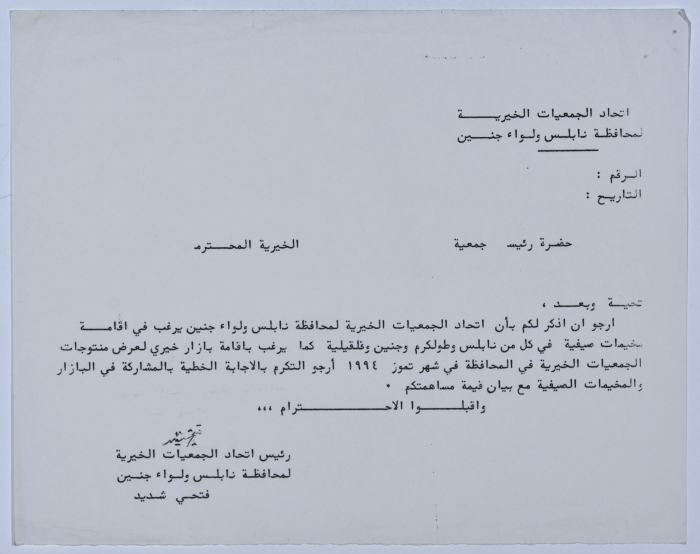 اتحاد الجمعيات الخيريــــة
لمحافظة نابلس ولواء جنين
الرقم :
التاريخ :
حضرة رئيس جمعية الخيرية المحترم
تحية وبعد ،
ارجو ان اذكر لكم بأن اتحاد الجمعيات الخيرية لمحافظة نابلس ولواء جنين يرغب في اقامة
مخيمات صيفية في كل من نابلس وطولكرم وجنين وقلقيلية كما يرغب باقامة بازار خيري لعرض منتوجات
الجمعيات الخيرية في المحافظة في شهر تموز ١٩٩٤ أرجو التكرم بالاجابة الخطية بالمشاركة في البازار
والمخيمات الصيفية مع بيان قيمة مساهمتكم .
واقبلوا الاحترام ،،،
رئيس اتحاد الجمعيات الخيرية
لمحافظة نابلس ولواء جنين
فتحي شديد